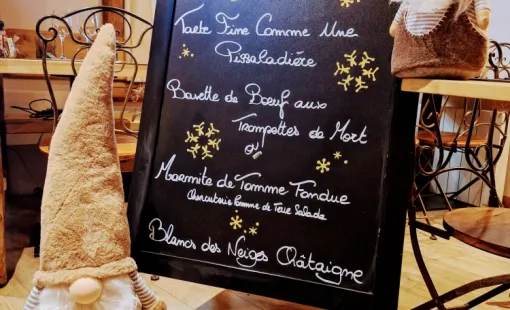 Tarte Fine Comme Une
Pissaladière
Bavette de Bœuf aux
Trompettes de Mort
ou
Marmite de Tomme Fondue
Charcuterie Pomme de Terre Salade
Blancs des Neiges Châtaigne